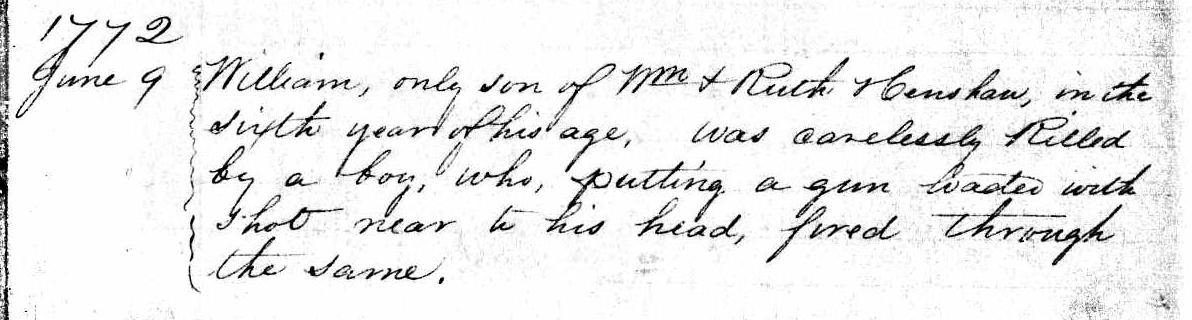 1772
June 9 William, only son of Wm & Ruth Henshaw, in the
sixth year of his age, was carelessly Killed
by a boy, who, putting a gun loaded with
shot near to his head, fired through
the same.